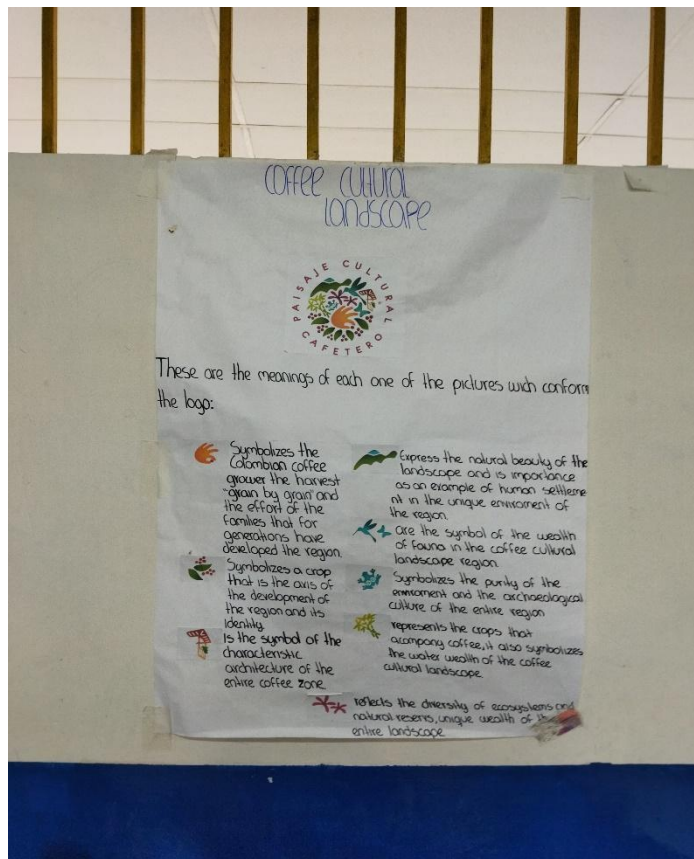 COFFEE CULTURAL
LANDSCAPE
PAISAJE CULTURAL
CAFETERO
These are the meanings of each one of the pictures wich conform
the logo:
Symbolizes the
Colombian coffee
grower the harvest
"grain by grain" and
the effort of the
families that for
generations have
developed the region.
Symbolizes a crop
that is the axis of
the development of
the region and its
identity
Is the symbol of the
characteristic
architecture of the
entire coffee zone
Express the natural beauty of the
landscape and is importance
as an example of human settleme
nt in the unique enviroment of
the region.
are the symbol of the wealth
of fauna in the coffee cultural
landscape region.
Symbolizes the purity of the
enviroment and the archaeological
culture of the entire region
represents the crops that
acompany coffee, it also symbolizes
the water wealth of the coffee
cultural landscape
reflects the diversity of ecosystems and
natural reservs, unique wealth of the
entire landscape